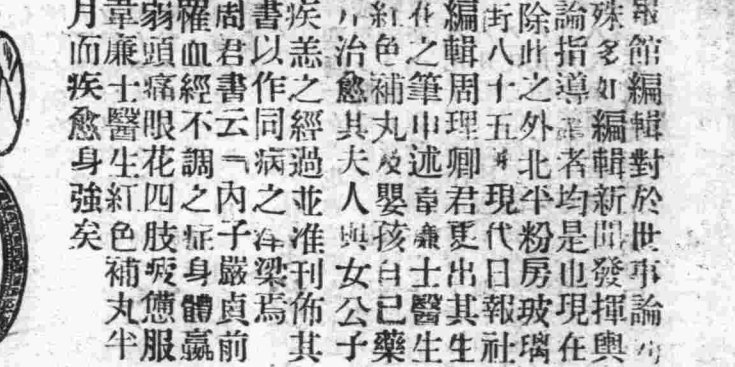 館編輯對於世事論
殊多如編輯新聞發揮輿
論指導讀者均是也現在
除此之外北平粉房玻璃
街八十五號現代日報社
編輯周理卿君更出其生
花之筆申述韋廉士醫生
紅色補丸及嬰孩自己藥
片治愈其夫人與女公子
疾恙之經過並准刊佈其
書以作同病之津梁焉
周君書云「內子嚴貞前
罹血經不調之症身體羸
弱頭痛眼花四肢疲憊服
韋廉士醫生紅色補丸半
月而疾愈身強矣